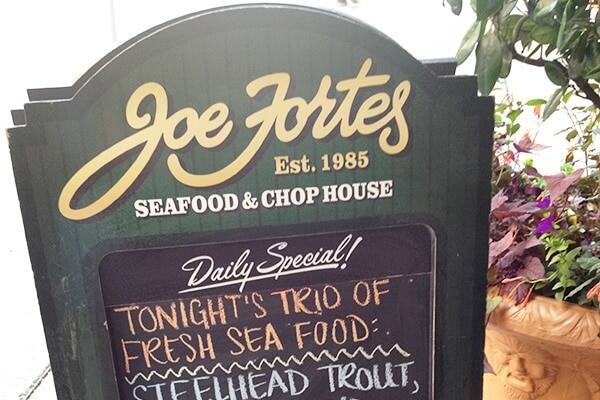 Joe Fortes
Est. 1985
SEAFOOD & CHOP HOUSE
Daily Special!
TONIGHT'S TRIO OF
FRESH SEA FOOD:
STEELHEAD TROUT,